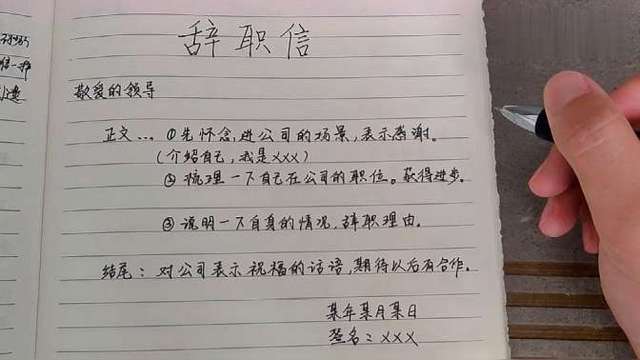 辞职信
敬爱的领导
正文... ①先怀念,进公司的场景,表示感谢。
(介绍自己,我是xxx)
②梳理一下自己在公司的职位。获得进步。
③说明一下自身的情况,辞职理由。
结尾:对公司表示祝福的话语,期待以后有合作。
某年某月某日
签名:xxx